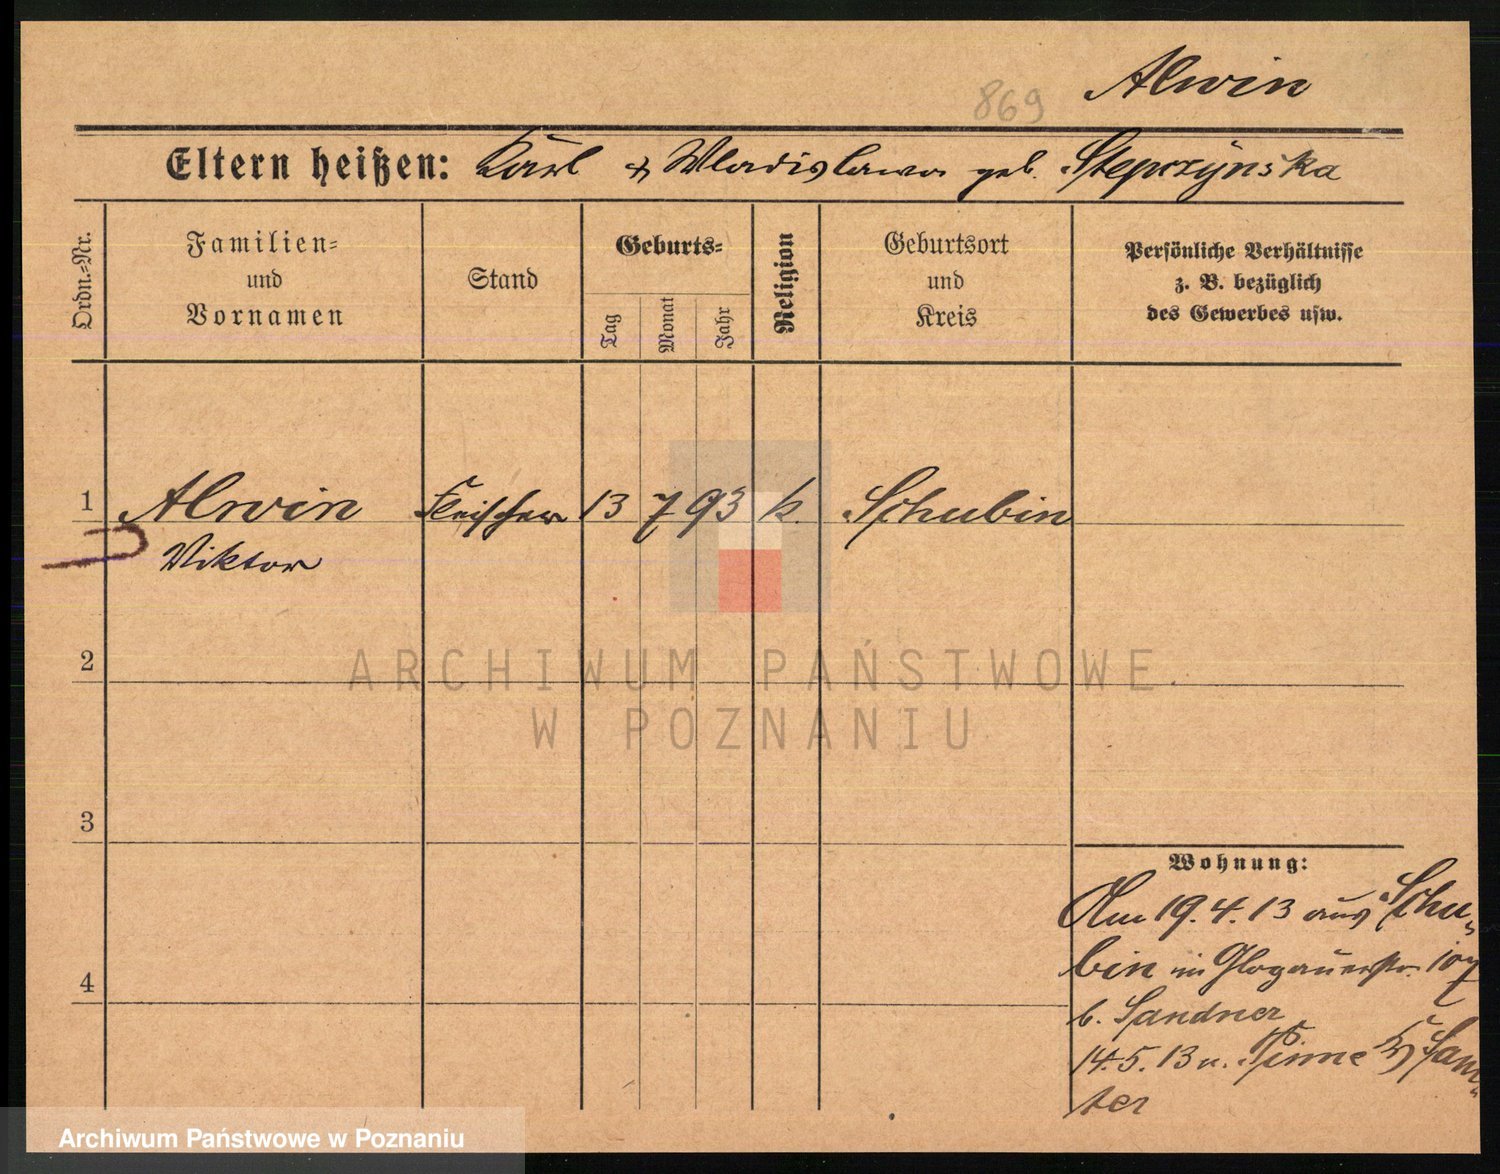 Alwin
869
Eltern heißen: Karl & Wladislawa geb. Stepczynska
Ordn.-Nr.
Familien-
und
Vornamen
Stand
Geburts-
Tag
Monat
Jahr
Religion
Geburtsort
und
Kreis
Persönliche Verhältnisse
z. B. bezüglich
des Gewerbes usw.
1 Alwin Fleischer 13 7 93 k. Schubin
Viktor
2
ARCHIWUM PAŃSTWOWE
W POZNANIU
3
Wohnung:
Am 19.4.13 aus Schu-
bin in Glogauerstr. 107
4
b. Sandner
14.5.13 n. Pinne Kr Sam-
ter
Archiwum Państwowe w Poznaniu